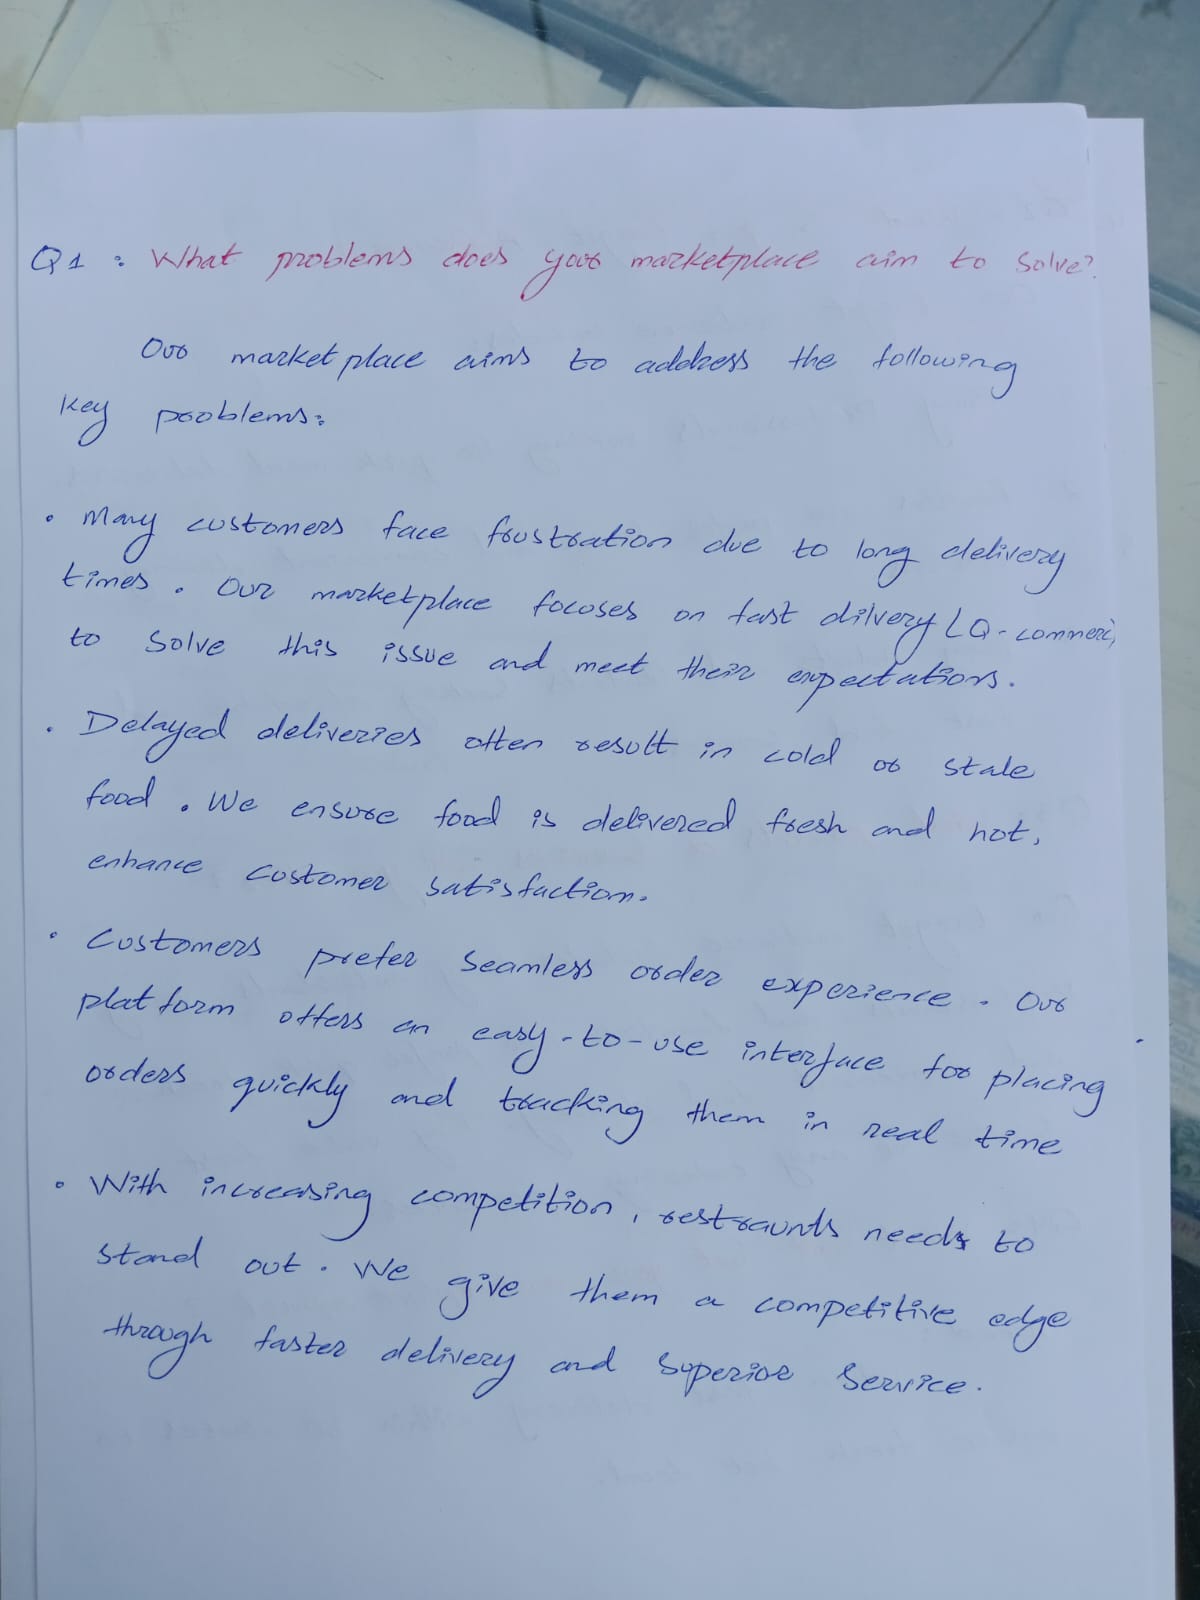 Q1 : What problems does your marketplace aim to solve?
Our market place aims to address the following
key problems:
• Many customers face frustration due to long delivery
times. Our marketplace focuses on fast dilvery (Q-commerc,
to solve this issue and meet their expectations.
• Delayed deliveries often result in cold or stale
food. We ensure food is delivered fresh and hot,
enhance customer satisfaction.
• Customers prefer seamless order experience. Our
platform offers an easy-to-use interface for placing
orders quickly and tracking them in real time
• With increasing competition, restraunts needs to
stand out. We give them a competitive edge
through faster delivery and superior service.